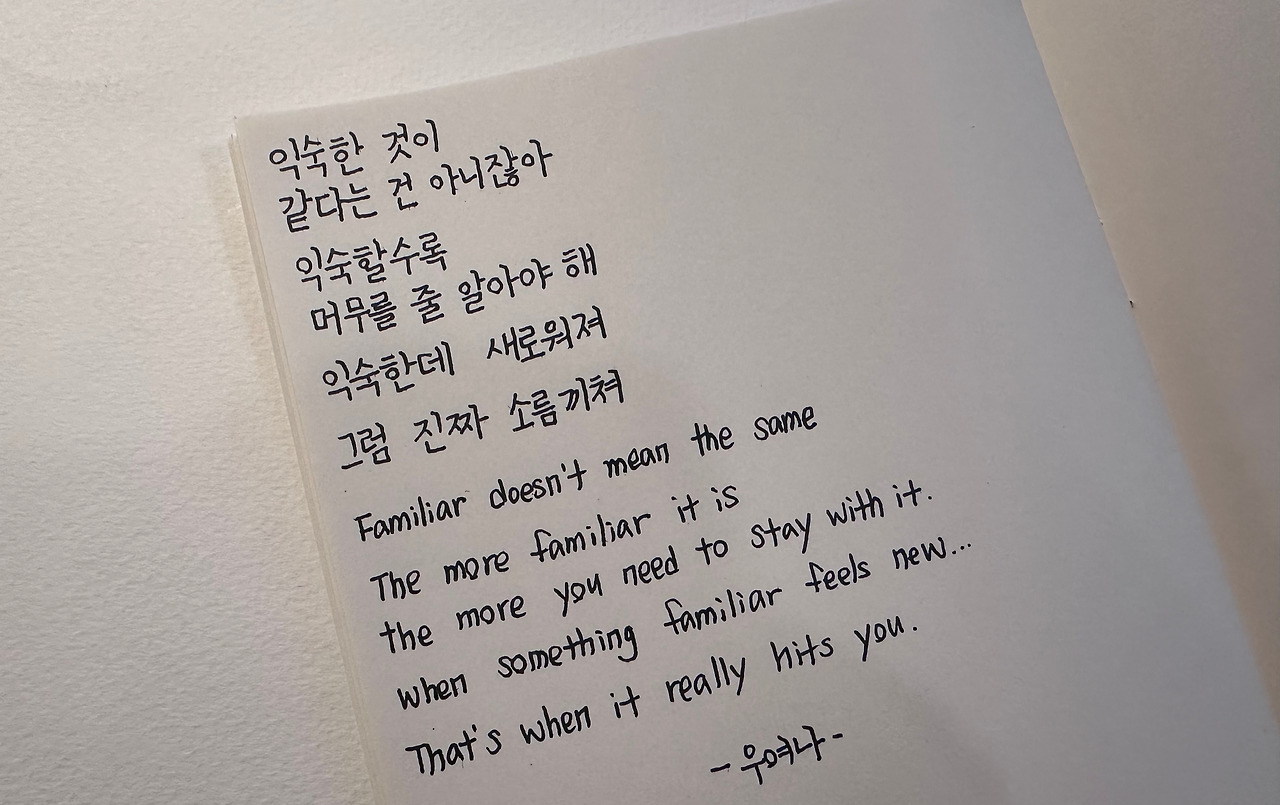 익숙한 것이
같다는 건 아니잖아
익숙할수록
머무를 줄 알아야 해
익숙한데 새로워져
그럼 진짜 소름끼쳐
Familiar doesn't mean the same
The more familiar it is
the more you need to stay with it.
when something familiar feels new...
That's when it really hits you.
-우여나-